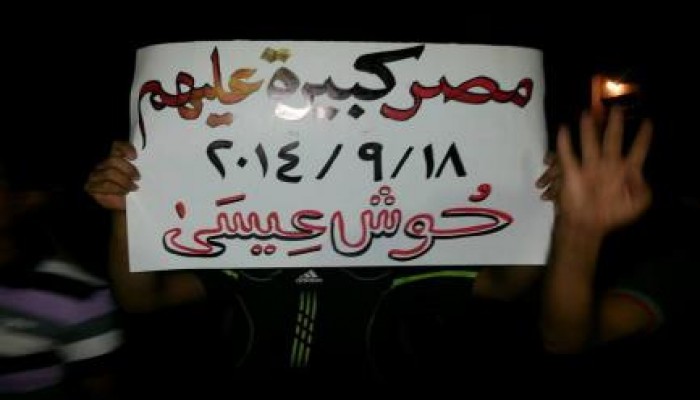 مصر كبيرة عليهم
٢٠١٤/٩/١٨
حُوش عِيسَىٰ